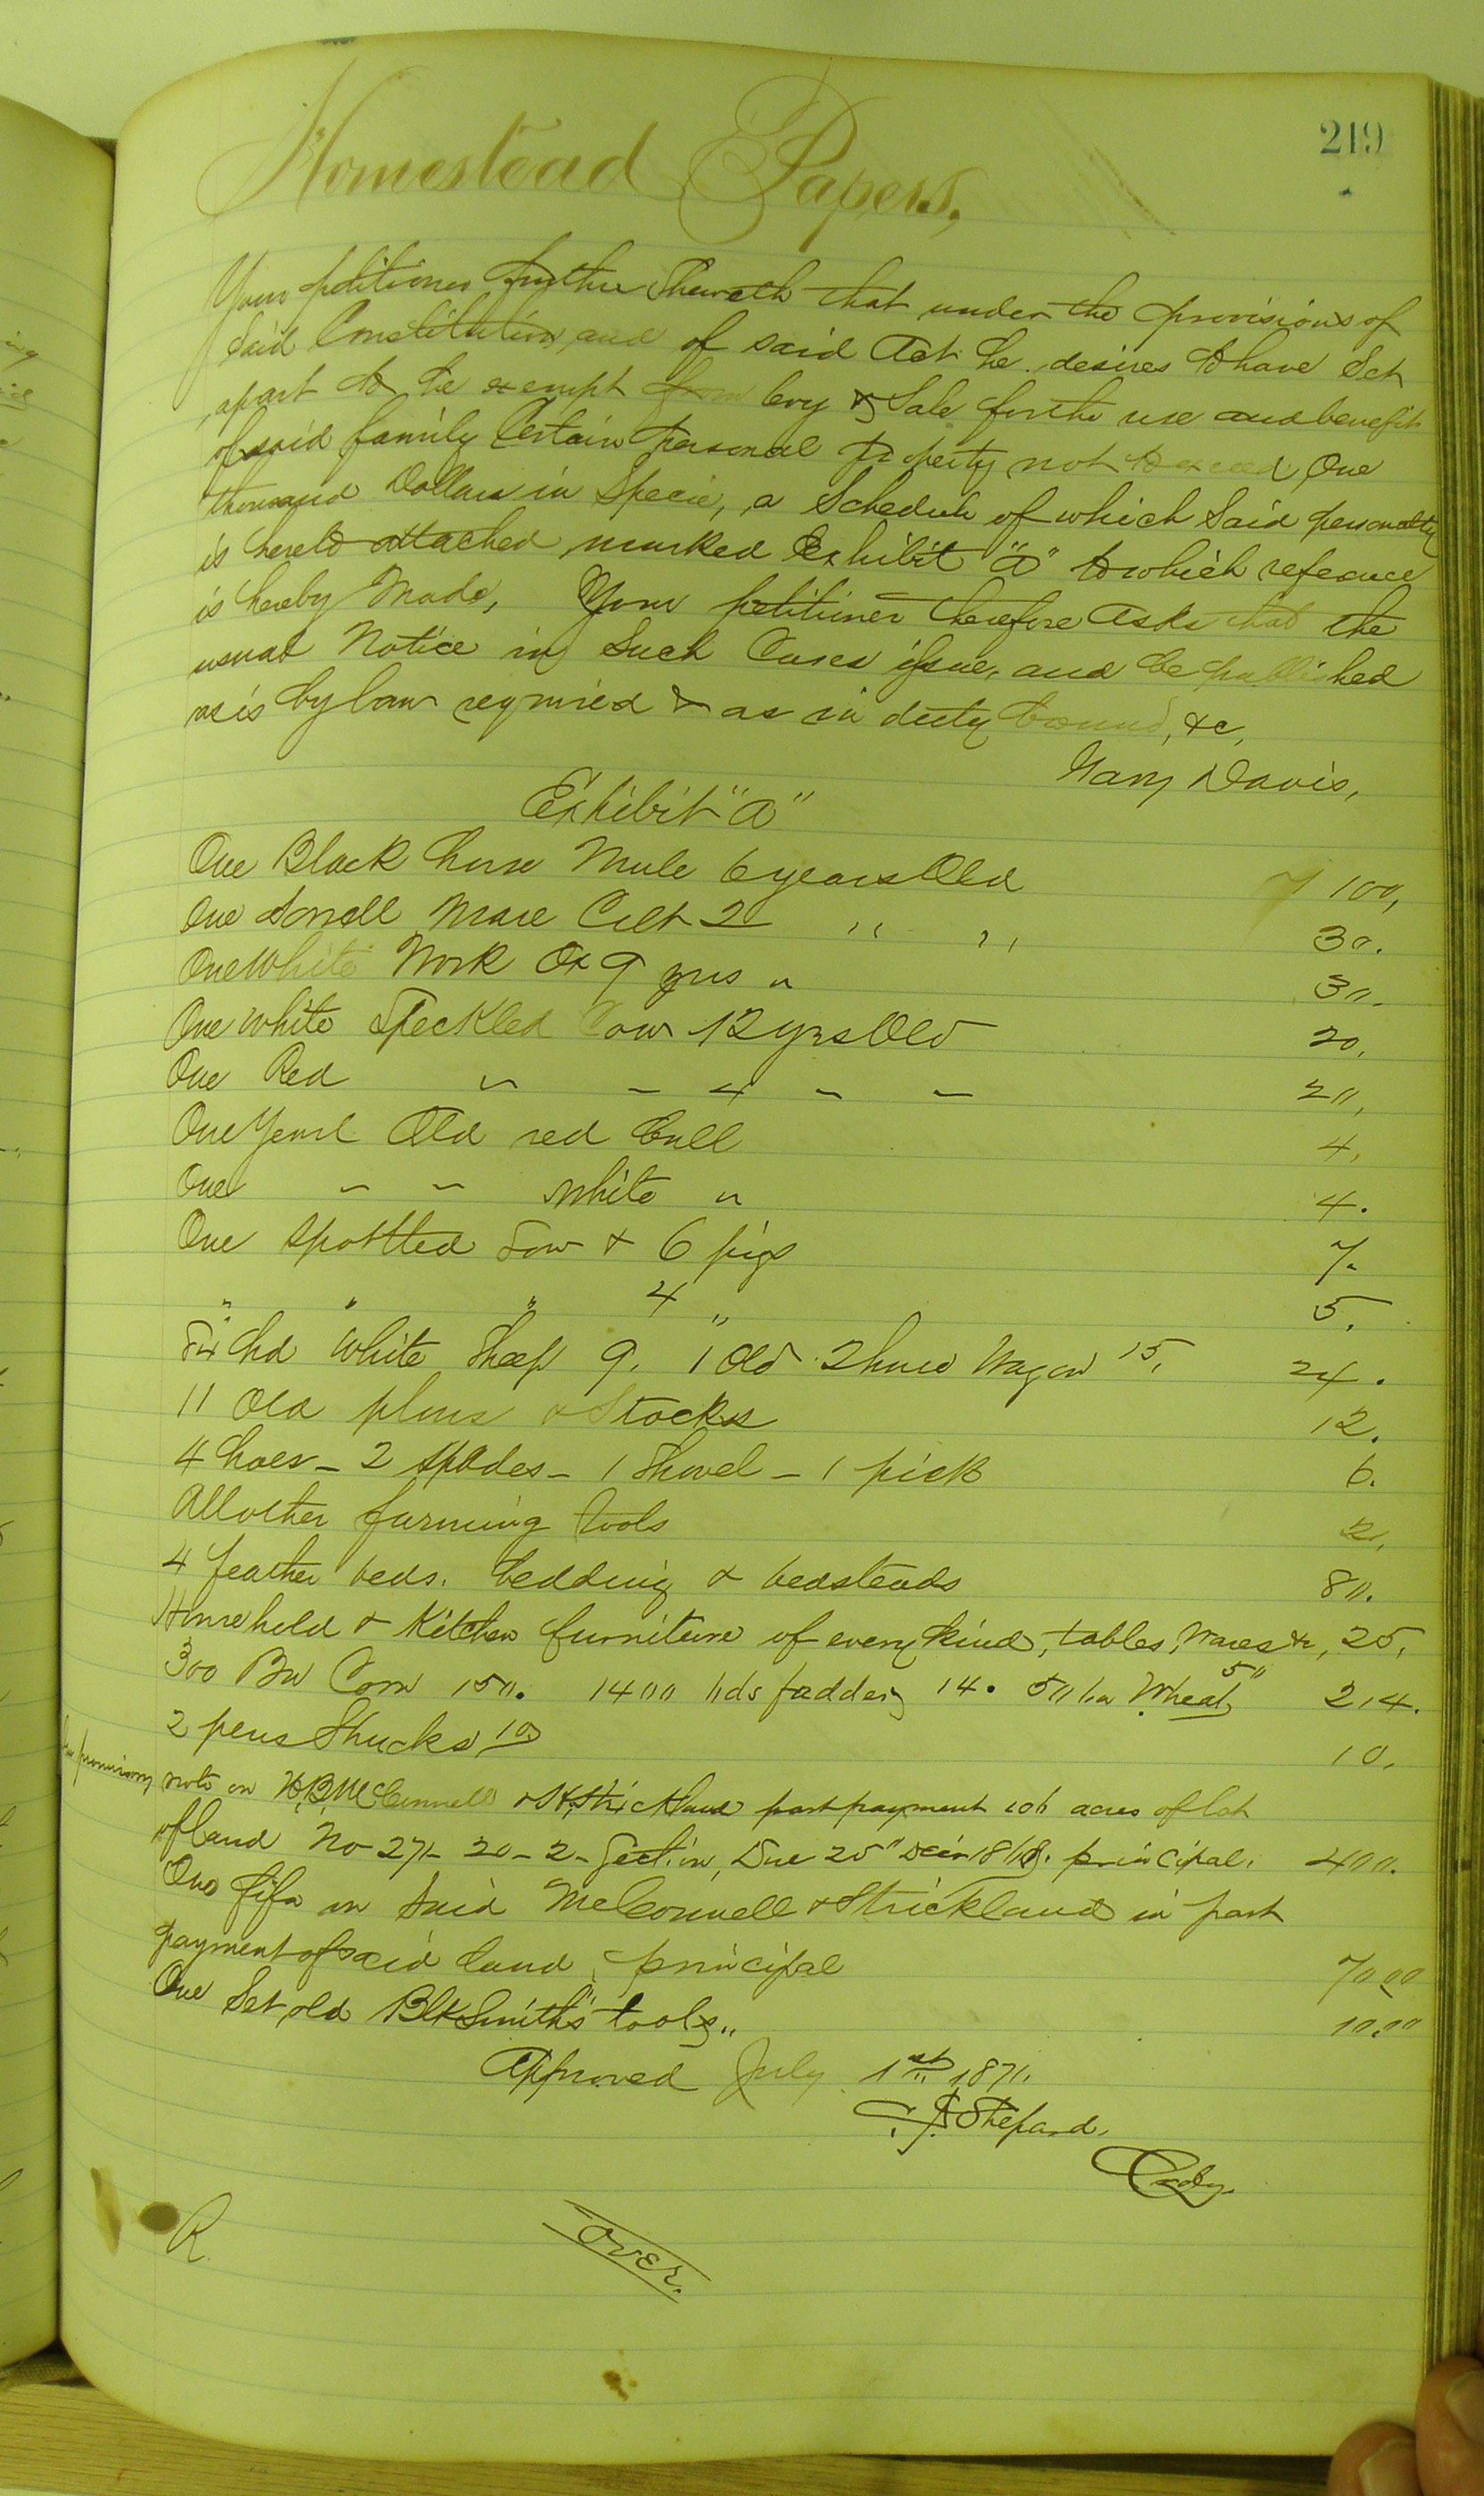 219
Homestead Papers,
Your petitioner further Sheweth that under the provisions of
Said Constitution and of said Act he desires to have Set
apart to be exempt from levy & Sale for the use and benefit
of said family Certain personal property not to exceed One
thousand Dollars in Specie, a Schedule of which Said personalty
is hereto attached marked Exhibit "A" to which reference
is hereby Made, Your petitioner therefore Asks that the
usual Notice in Such Cases issue, and be published
as is by law required & as in duty bound, &c,
Davis,
Exhibit "A"
One Black horse Mule 6 years Old 100,
One Sorrell Mare Colt 2 " " 30.
One White Work Ox 9 yrs " 30.
One White Speckled Cow 12 yrs Old 20.
One Red " - 4 - - 20,
One Year Old red bull 4,
One - - White " 4.
One spottted Sow & 6 pigs 7.
" " " 4 " 5.
Six hd White Sheep 9. 1 Old 2 horse Wagon 15, 24.
11 Old plows & Stocks 12.
4 hoes - 2 spades - 1 Shovel - 1 pick 6.
All other farming tools 2,
4 feather beds. bedding & bedsteads 80.
Household & Kitchen furniture of every kind, tables, Wares &c, 25,
300 Bu Corn 150. 1400 lbs fodder 14. 50 bu Wheat 50 214.
2 pens Shucks 10 10.
promissory note on McConnell & Strickland part payment 106 acres of lot
of land No 271 - 20 - 2 - Section, Due 25" Decr principal. 400.
One fifa on Said McConnell & Strickland in part
payment of said land, principal 70.00
One Set old BlkSmith's tools 10.00
Approved July 1st 1871.
Shepard,
Ordy.
R
OVER.